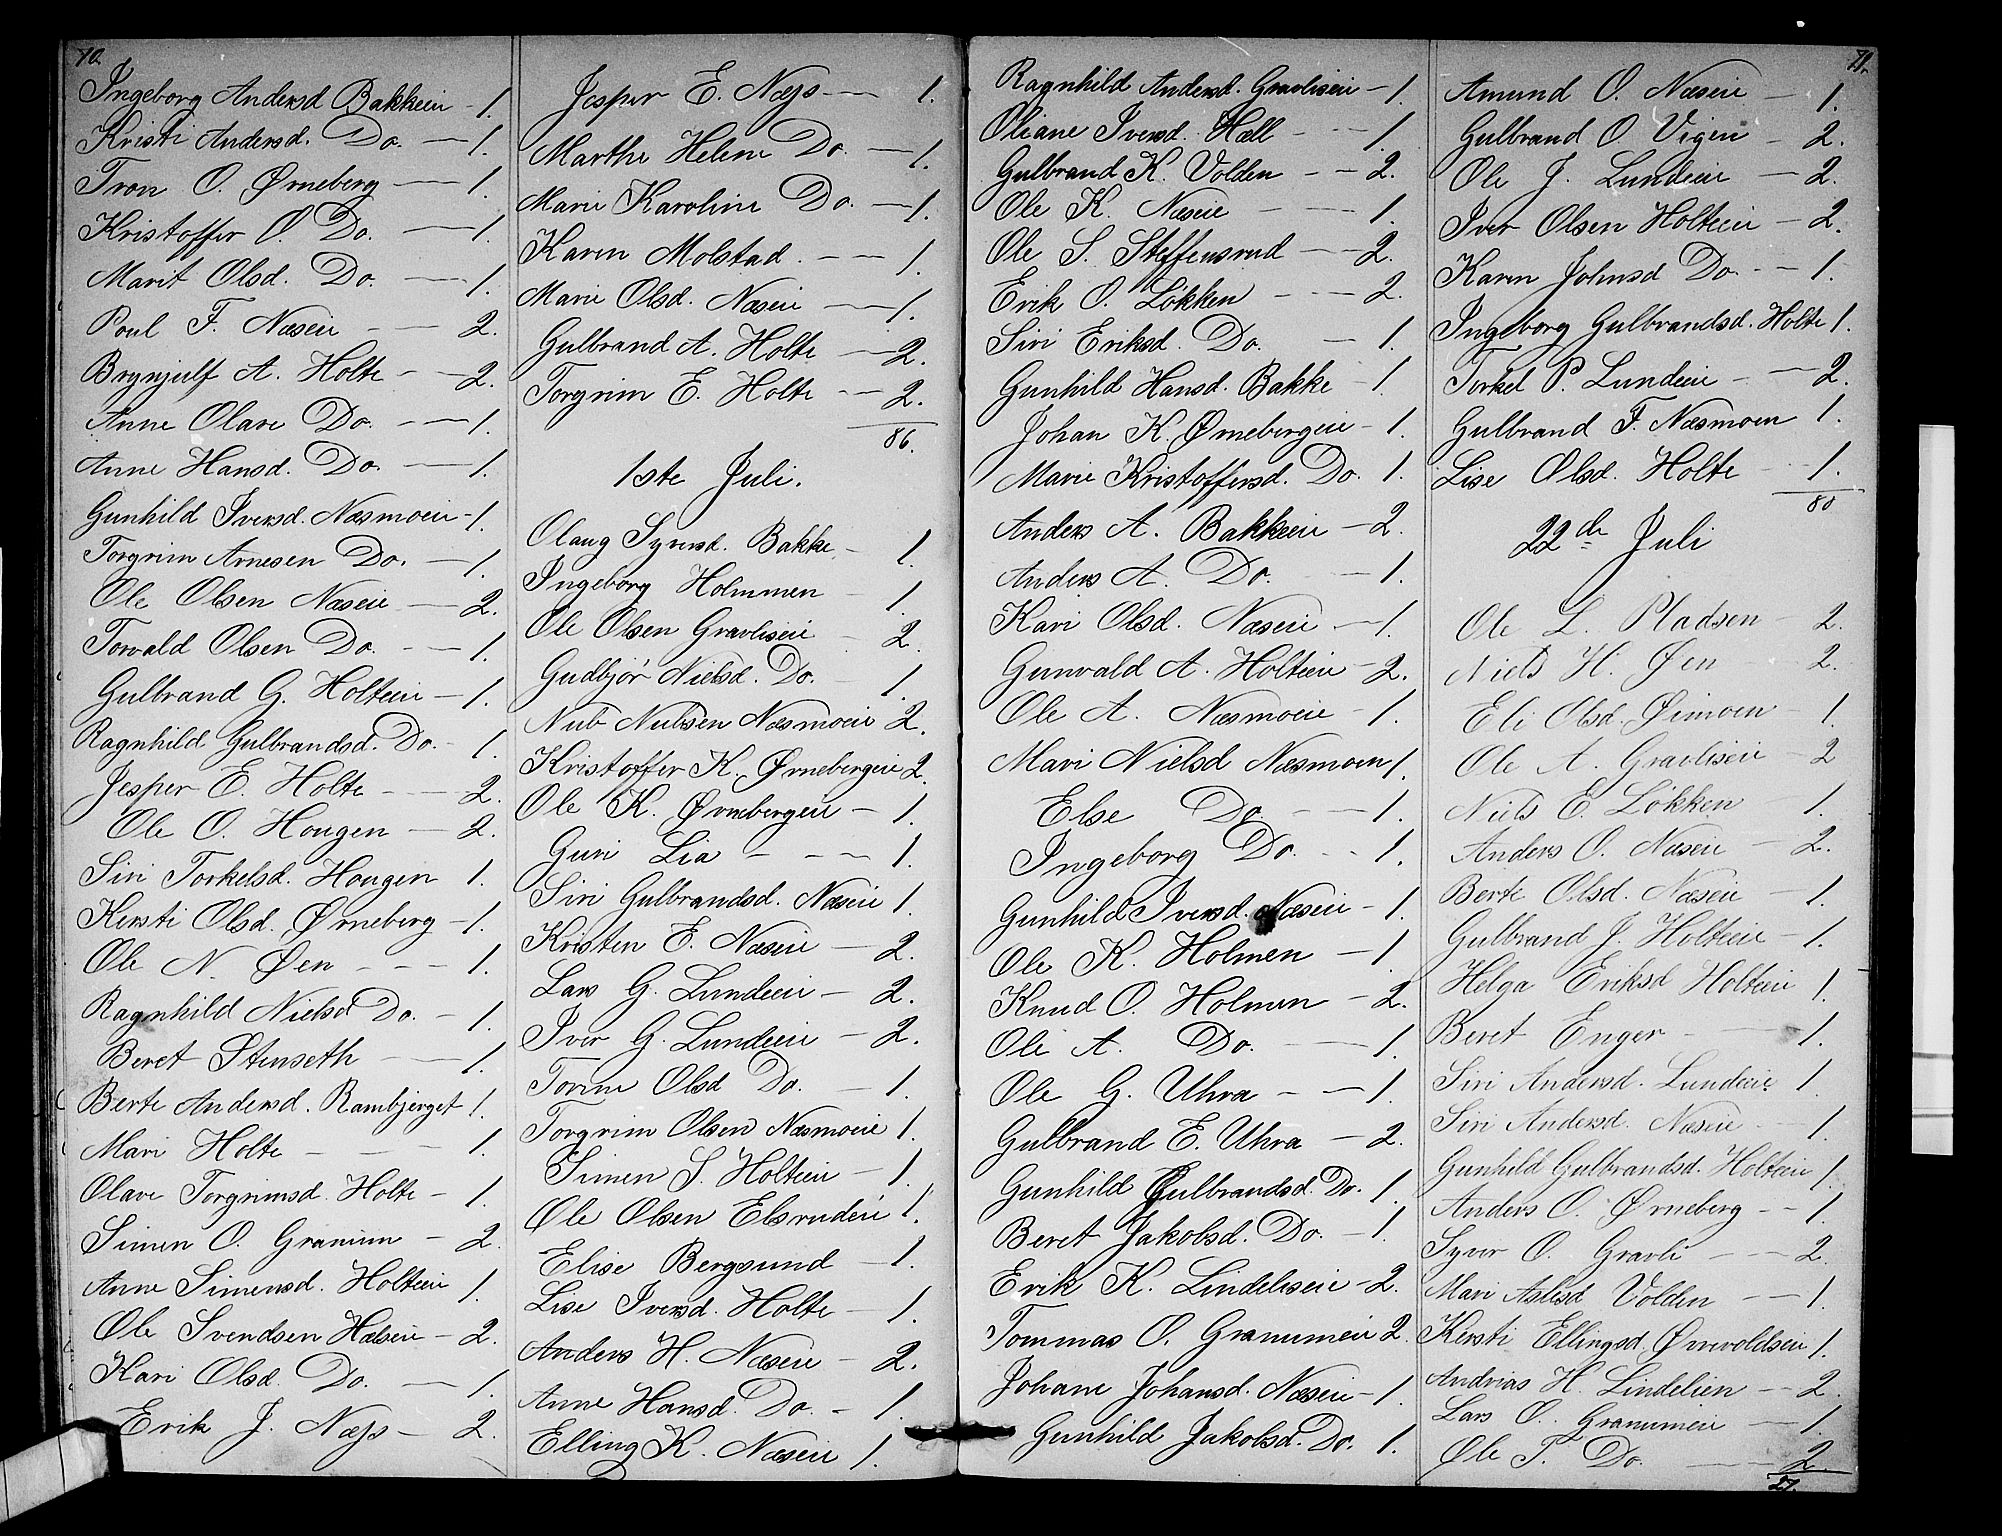 70.
Ingeborg Andersd Bakkeie - 1.
Kristi Andersd. Do. - 1.
Tron O. Ørneberg - 1.
Kristoffer O. Do. - 1.
Marit Olsd. Do. - 1.
Poul F. Næseie - 2.
Brynjulf A. Holte - 2.
Anne Olave Do. - 1.
Anne Hansd. Do. - 1.
Gunhild Iversd. Næsmoeie - 1.
Torgrim Arnesen Do. - 1.
Ole Olsen Næseie - 2.
Torvald Olsen Do. - 1.
Gulbrand G. Holteeie - 1.
Ragnhild Gulbrandsd. Do. - 1.
Jesper E. Holte - 2.
Ole O. Hougen - 2.
Siri Torkelsd. Hougen 1.
Kersti Olsd. Ørneberg - 1.
Ole N. Øen - 1.
Ragnhild Nielsd Do. - 1.
Beret Stenseth - 1.
Berte Andersd. Rambjerget 1.
Mari Holte - 1.
Olave Torgrimsd. Holte - 1.
Simen O. Granum - 2.
Anne Simensd. Holteeie 1.
Ole Svendsen Hælseie - 2.
Kari Olsd. Do. - 1.
Erik J. Næss - 2.
Jesper E. Næss - 1.
Marthe Helene Do. - 1.
Marie Karoline Do. - 1.
Karen Molstad. - 1.
Marie Olsd. Næseie - 1.
Gulbrand A. Holte - 2.
Torgrim E. Holte - 2.
86.
1ste Juli.
Olaug Syversd. Bakke - 1.
Ingeborg Holmmen - 1.
Ole Olsen Gravliseie 2.
Gudbjør Nielsd. Do. 1.
Nub Nubsen Næsmoeie 2.
Kristoffer K. Ørnebergeie 2.
Ole K. Ørnebergeie - 1.
Guri Lia - 1.
Siri Gulbrandsd. Næseie 1.
Kristen E. Næseie - 2.
Lars G. Lundeeie - 2.
Iver G. Lundeeie - 2.
Torine Olsd Do. - 1.
Torgrim Olsen Næsmoeie 1.
Simen S. Holteeie - 1.
Ole Olsen Elsrudeie 1.
Elise Bergsund - 1.
Lise Iversd. Holte - 1.
Anders H. Næseie - 2.
Anne Hansd. Do. - 1.
Elling K. Næseie 1.
71.
Ragnhild Andersd. Gravliseie - 1.
Oliane Iversd. Hæll - 1.
Gulbrand K. Volden - 2.
Ole K. Næseie - 1.
Ole S. Steffensrud - 2.
Erik O. Løkken - 2.
Siri Eriksd. Do. - 1.
Gunhild Hansd. Bakke - 1.
Johan K. Ørnebergeie - 1.
Marie Kristoffersd. Do. 1.
Anders A. Bakkeeie - 2.
Anders A. Do. - 1.
Kari Olsd. Næseie - 1.
Gunvald A. Holteeie - 2.
Ole A. Næsmoeie - 1.
Mari Nielsd Næsmoen 1.
Else Do. - 1.
Ingeborg Do. - 1.
Gunhild Iversd. Næseie - 1.
Ole K. Holmen - 1.
Knud O. Holmen - 2.
Oli A. Do. - 1.
Ole G. Uhra - 1.
Gulbrand E. Uhra - 2.
Gunhild Gulbrandsd. Do. 1.
Beret Jakobsd. Do. - 1.
Erik K. Lindeliseie - 2.
Tommas O. Granumeie 2.
Johane Johansd. Næseie - 1.
Gunhild Jakobsd. Do. 1.
Amund O. Næseie - 1.
Gulbrand O. Vigen - 2.
Ole J. Lundeeie - 2.
Iver Olsen Holteeie - 2.
Karen Johnsd Do. - 1.
Ingeborg Gulbrandsd. Holte 1.
Torkel P. Lundeeie - 2.
Gulbrand F. Næsmoen 1.
Lise Olsd. Holte 1.
80
22de Juli
Ole L. Pladsen - 2.
Niels H. Øen 2.
Eli Olsd. Øimoen - 1.
Ole A. Gravliseie - 2
Niels E. Løkken - 1.
Anders O. Næseie - 2.
Berte Olsd. Næseie - 1.
Gulbrand J. Holteeie - 1.
Helga Eriksd Holteeie 1.
Beret Enger - 1.
Siri Andersd. Lundeeie 1.
Siri Andersd. Næseie - 1.
Gunhild Gulbrandsd. Holteeie 1.
Anders O. Ørneberg - 1.
Syver O. Gravli - 2.
Mari Aslesd Volden - 1.
Kersti Ellingsd. Ørevoldseie 1.
Andrias H. Lindelien - 2.
Lars O. Granumeie - 1.
Ole T. Do. - 2.
27.